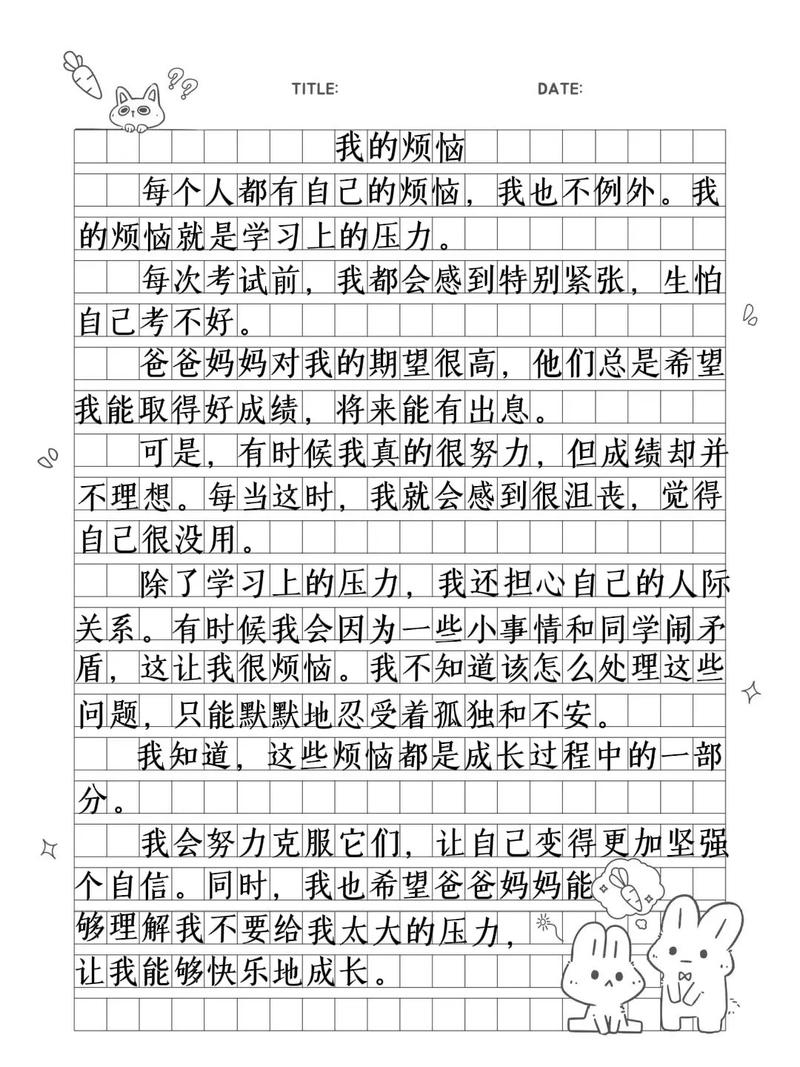 TITLE: DATE:
我的烦恼
每个人都有自己的烦恼，我也不例外。我
的烦恼就是学习上的压力。
每次考试前，我都会感到特别紧张，生怕
自己考不好。
爸爸妈妈对我的期望很高，他们总是希望
我能取得好成绩，将来能有出息。
可是，有时候我真的很努力，但成绩却并
不理想。每当这时，我就会感到很沮丧，觉得
自己很没用。
除了学习上的压力，我还担心自己的人际
关系。有时候我会因为一些小事情和同学闹矛
盾，这让我很烦恼。我不知道该怎么处理这些
问题，只能默默地忍受着孤独和不安。
我知道，这些烦恼都是成长过程中的一部
分。
我会努力克服它们，让自己变得更加坚强
个自信。同时，我也希望爸爸妈妈能
够理解我不要给我太大的压力，
让我能够快乐地成长。